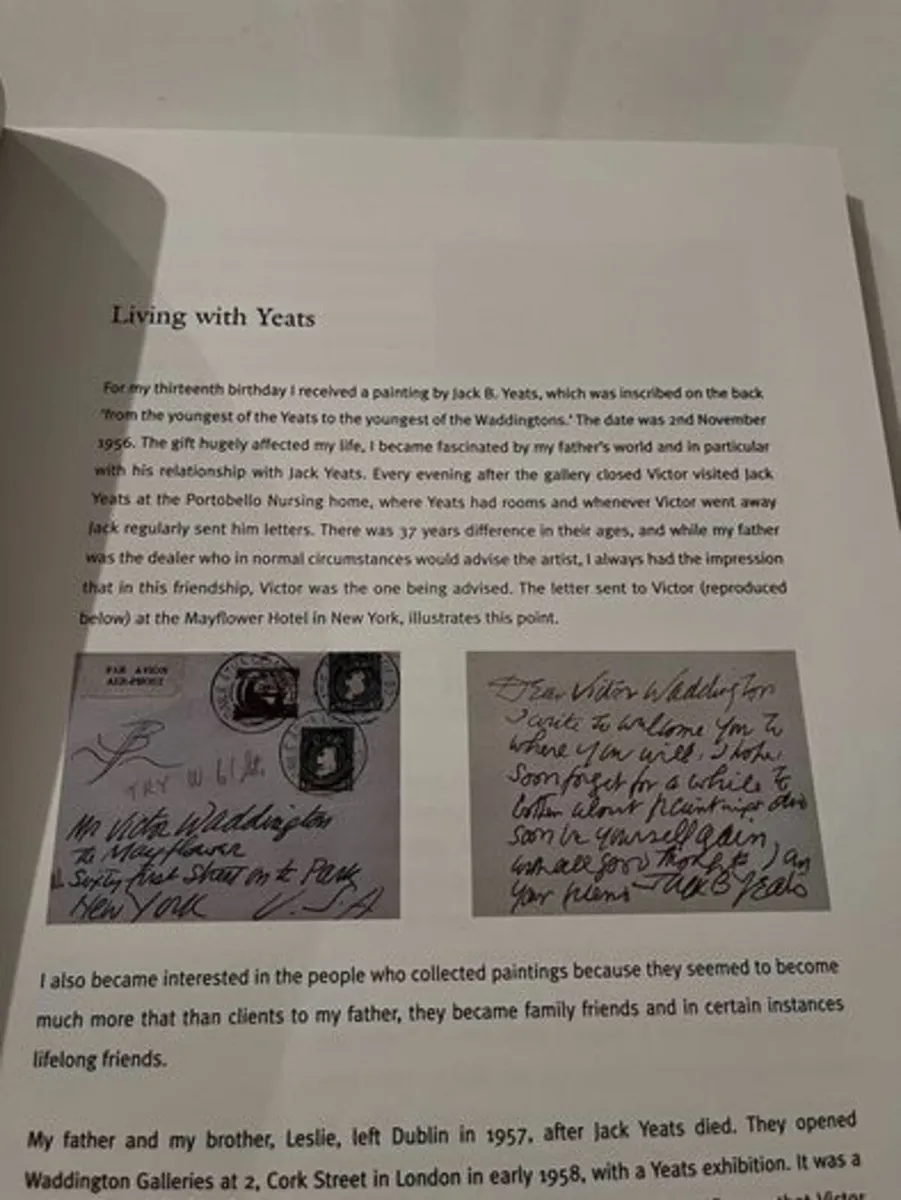 Living with Yeats
For my thirteenth birthday I received a painting by Jack B. Yeats, which was inscribed on the back
'from the youngest of the Yeats to the youngest of the Waddingtons.' The date was 2nd November
1956. The gift hugely affected my life, I became fascinated by my father's world and in particular
with his relationship with Jack Yeats. Every evening after the gallery closed Victor visited Jack
Yeats at the Portobello Nursing home, where Yeats had rooms and whenever Victor went away
Jack regularly sent him letters. There was 37 years difference in their ages, and while my father
was the dealer who in normal circumstances would advise the artist, I always had the impression
that in this friendship, Victor was the one being advised. The letter sent to Victor (reproduced
below) at the Mayflower Hotel in New York, illustrates this point.
PAR AVION
AER-PHOST
TRY W 61 St.
Mr Victor Waddington
The Mayflower
Sixty first Street on the Park
New York U.S.A
Dear Victor Waddington
I write to welcome you to
where you will, I hope,
soon forget for a while to
bother about
soon be yourself again,
with all good thoughts I am
your friend Jack B Yeats
I also became interested in the people who collected paintings because they seemed to become
much more that than clients to my father, they became family friends and in certain instances
lifelong friends.
My father and my brother, Leslie, left Dublin in 1957, after Jack Yeats died. They opened
Waddington Galleries at 2, Cork Street in London in early 1958, with a Yeats exhibition. It was a
that Victor